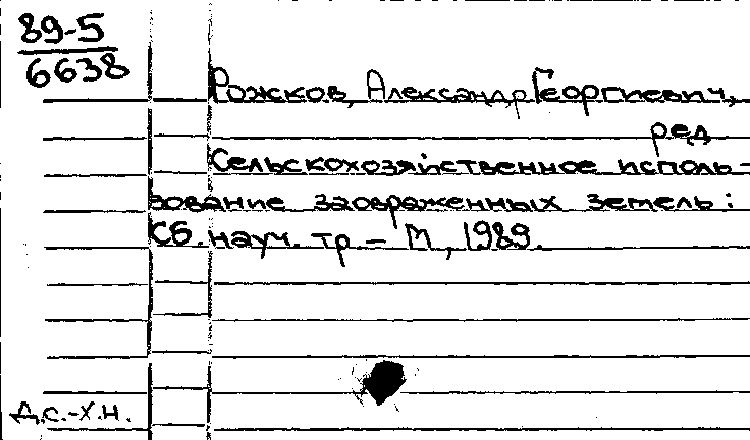 89-5
6638
Рожков, Александр Георгиевич,
ред
Сельскохозяйственное исполь-
зование заовраженных земель:
Сб. науч. тр – М, 1989.
Д.с.-х.н.